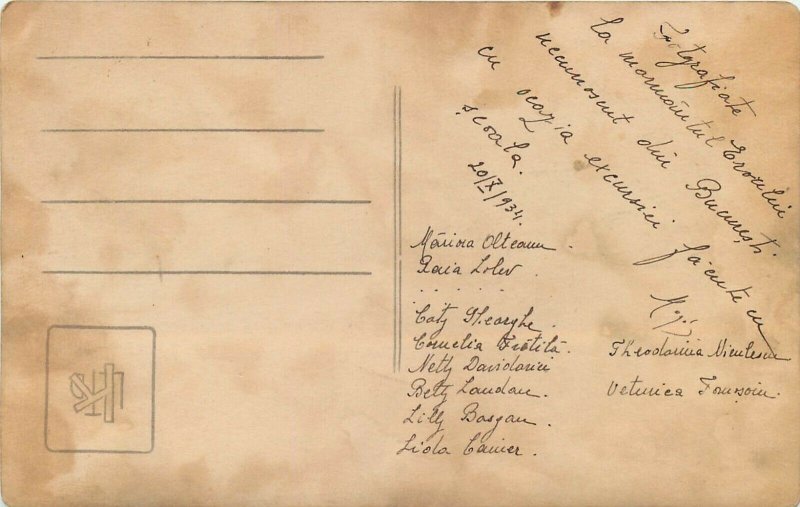 Fotgrafiate
la mormântul Eroului
necunoscut din București
cu ocazia excursiei făcute cu
școala.
20/X/934.
Mărioa Olteanu.
Raia Lolev.
. . . . . .
Caty Gheorghe.
Cornelia Frătilă.
Netty Davidovici
Betty Landau.
Lilly Basgan.
Lida Canier.
Theodorina Niculescu
Veturica